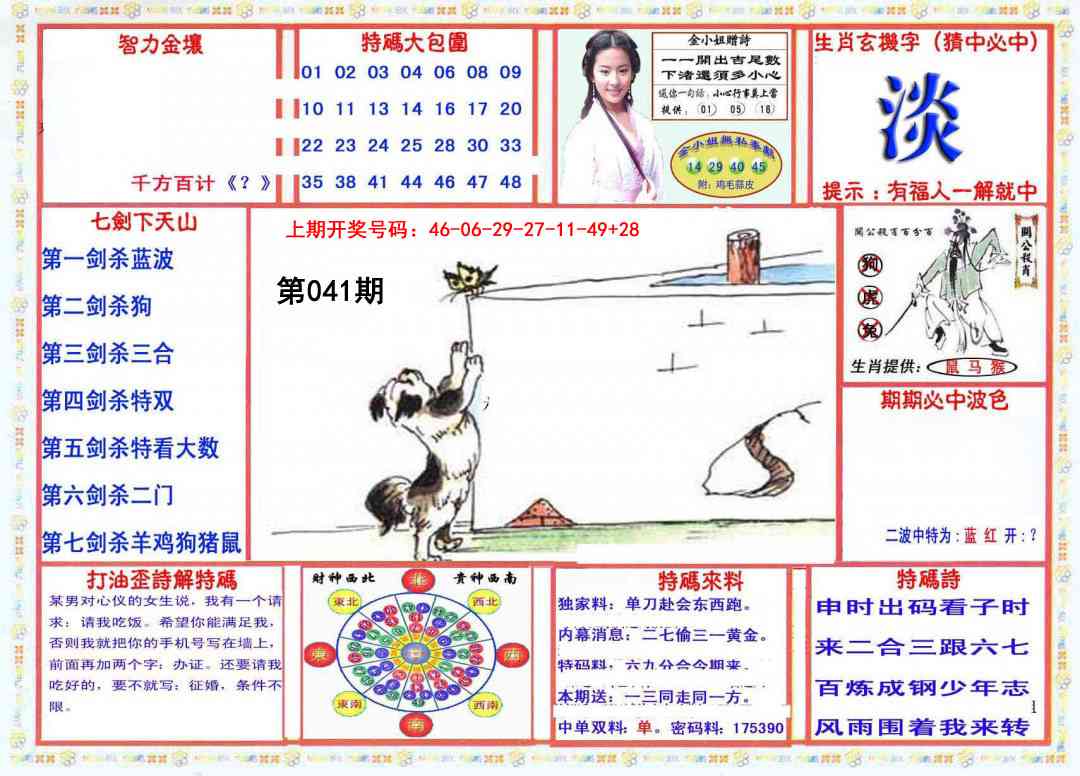 智力金壤
千方百计《？》
特碼大包圍
01 02 03 04 06 08 09
10 11 13 14 16 17 20
22 23 24 25 28 30 33
35 38 41 44 46 47 48
金小姐贈詩
一一開出吉尾數
下渚還須多小心
送你一句话：小心行事莫上當
提供：(01) 05 (16)
14 29 40 45
附：鸡毛蒜皮
生肖玄機字（猜中必中）
淡
提示：有福人一解就中
七劍下天山
第一剑杀蓝波
第二剑杀狗
第三剑杀三合
第四剑杀特双
第五剑杀特看大数
第六剑杀二门
第七剑杀羊鸡狗猪鼠
上期开奖号码：46-06-29-27-11-49+28
第041期
關公殺肖百分百
關公殺肖
狗
虎
兔
生肖提供：鼠 马 猴
期期必中波色
二波中特为：蓝 红 开：？
打油歪詩解特碼
某男对心仪的女生说，我有一个请
求：请我吃饭。希望你能满足我，
否则我就把你的手机号写在墙上，
前面再加两个字：办证。还要请我
吃好的，要不就写：征婚，条件不
限。
财神西北
贵神西南
北
東北
西北
東
西
東南
西南
南
特碼來料
独家料：单刀赴会东西跑。
内幕消息：二七偷三一黄金。
特码料：六九分合今期来。
本期送：一三同走同一方。
中单双料：单。密码料：175390
特碼詩
申时出码看子时
来二合三跟六七
百炼成钢少年志
风雨围着我来转